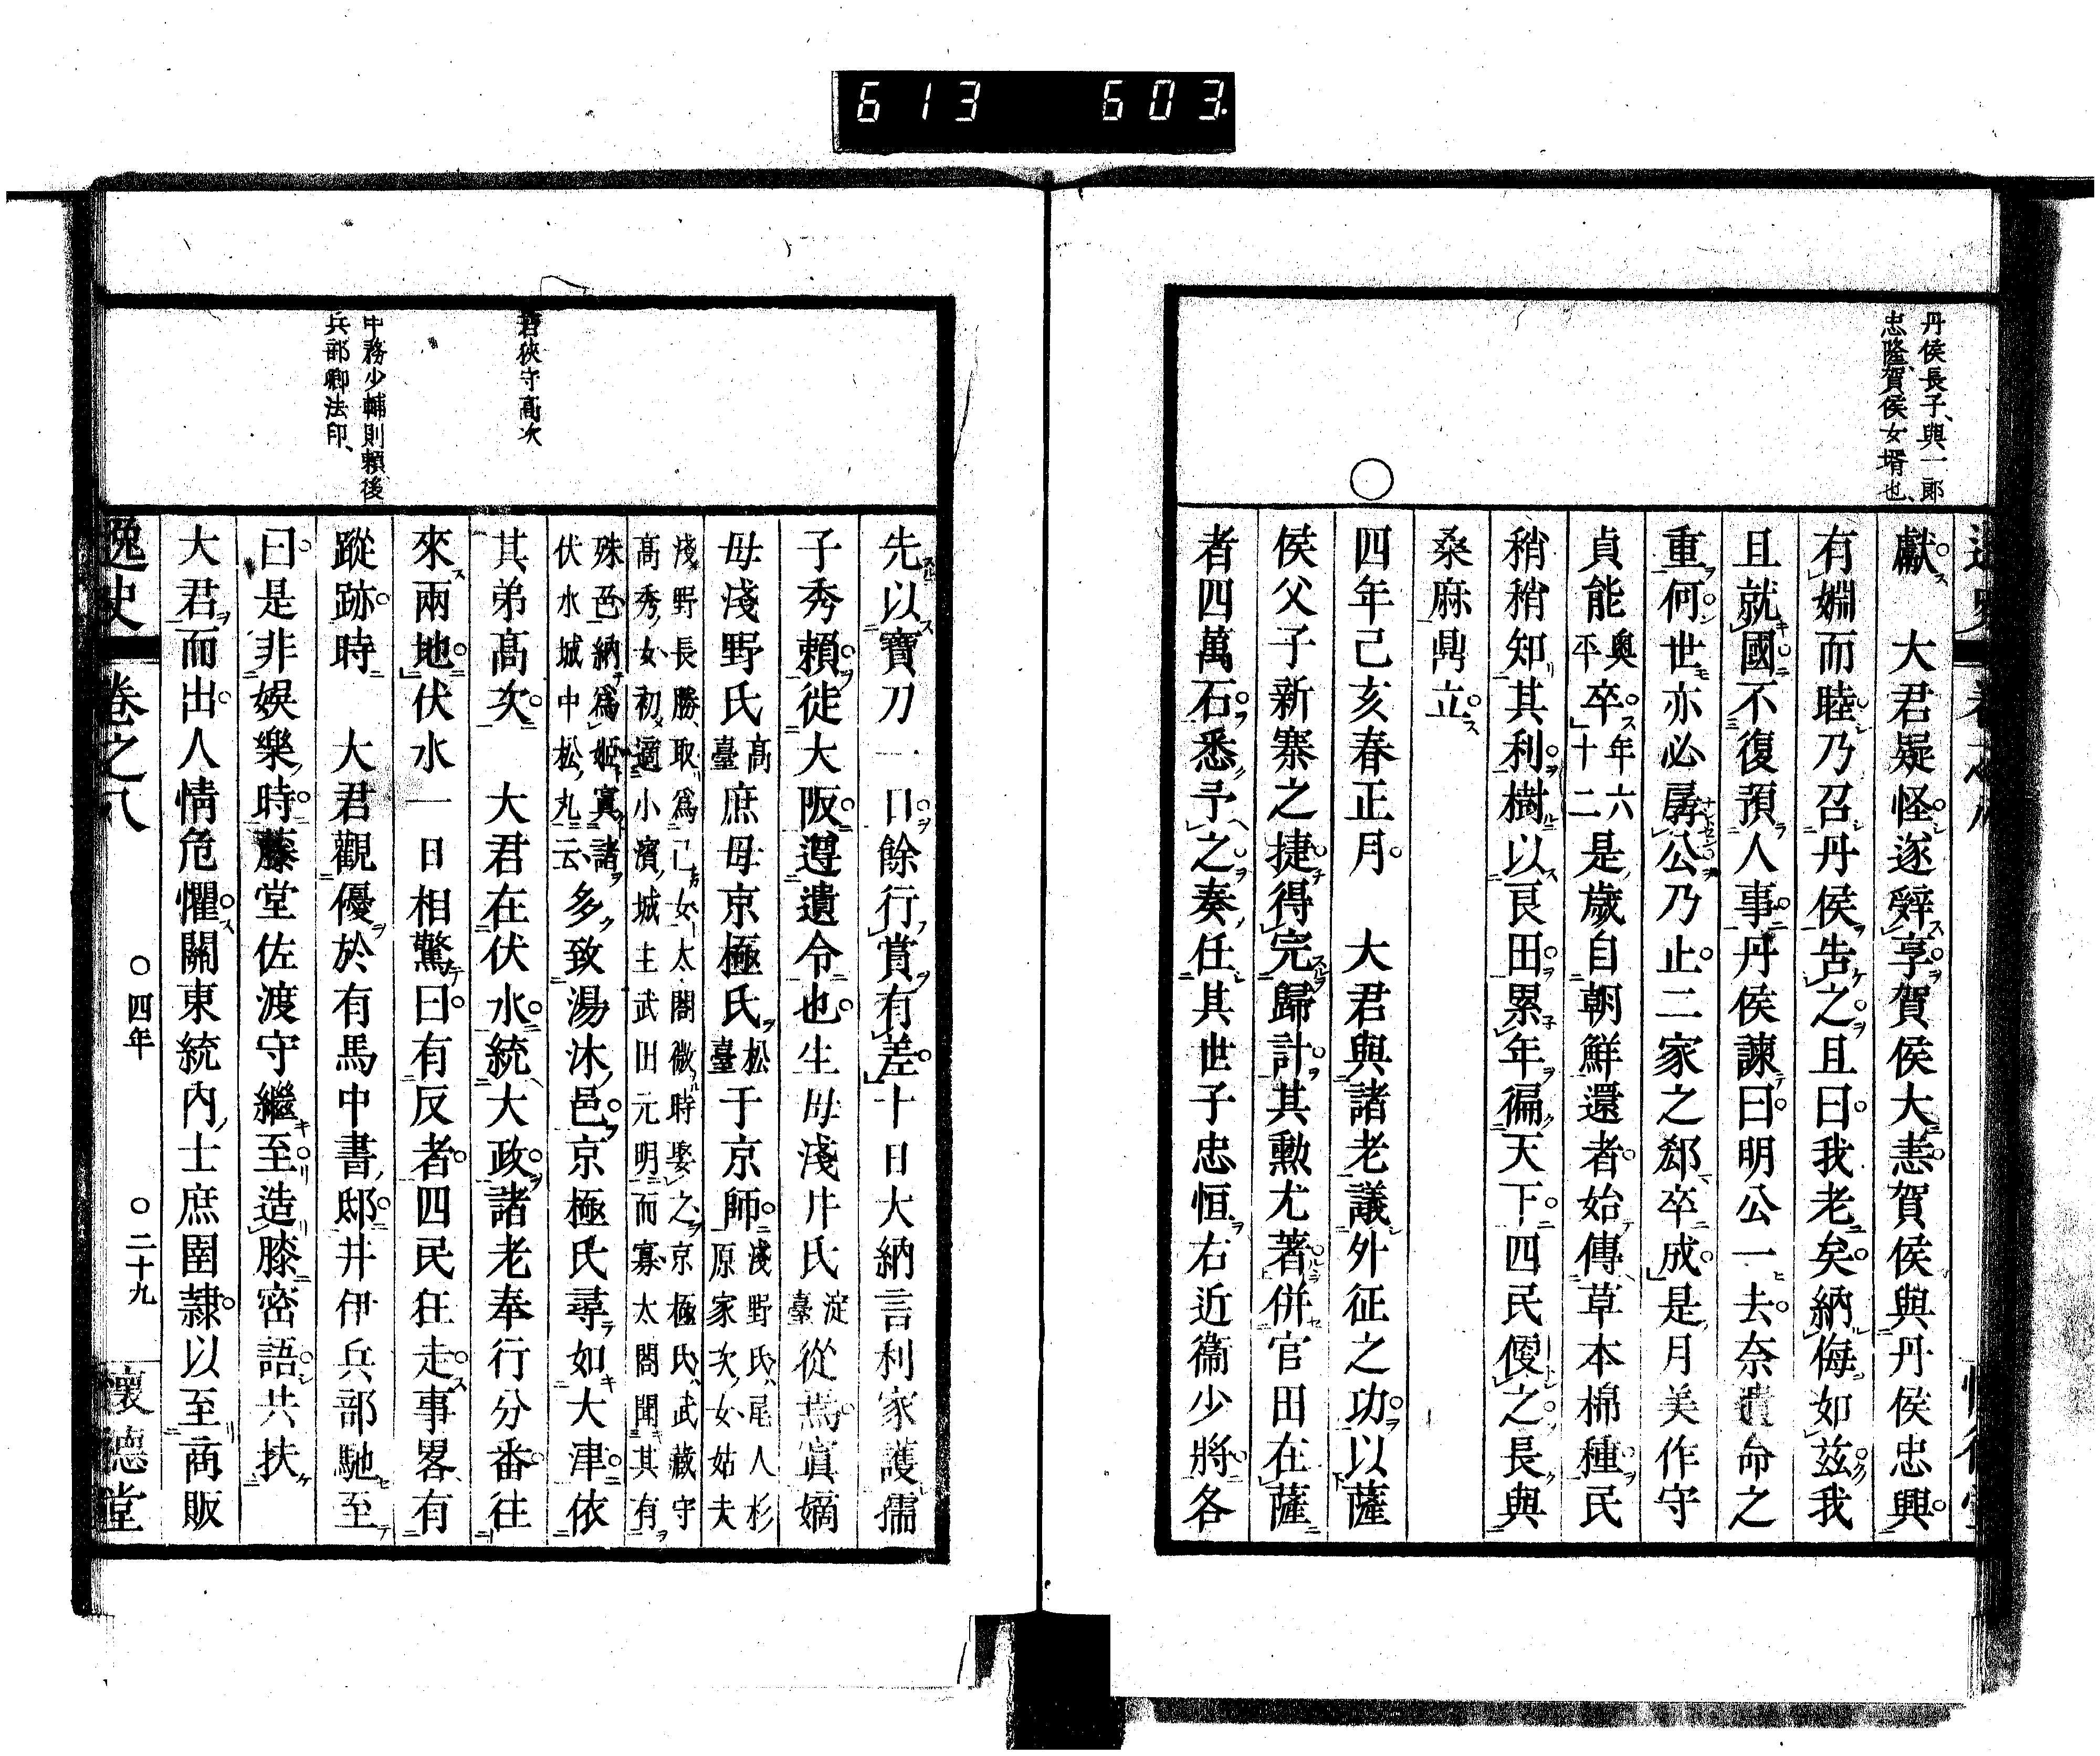 613 603
丹侯長子、與一郎
忠隆、賀侯女壻也、
獻。大君疑怪。遂辭享。賀侯大恚。賀侯與丹侯忠興。
有婣而睦。乃召丹侯告之。且曰。我老矣。納侮如茲。我
且就國。不復預人事。丹侯諫曰。明公一去。奈遺命之
重何。世亦必孱公。乃止。二家之郄卒成。是月美作守
貞能
奧平
卒。
年六十二
是歲自朝鮮還者。始傳草本棉種。民
稍稍知其利。樹以良田。累年徧天下。四民便之。長與
桑麻鼎立。
○
四年己亥春正月。大君與諸老議外征之功。以薩
侯父子新寨之捷。得完歸計。其勳尤著。併官田在薩
者四萬石。悉予之。奏任其世子忠恒右近衞少將。各
先以寶刀一口。餘行賞有差。十日大納言利家護孺
子秀賴。徙大阪。遵遺令也。生母淺井氏
淀臺
從焉。寘嫡
母淺野氏
高臺
庶母京極氏
松臺
于京師。
淺野氏、尾人杉
原家次女、姑夫
淺野長勝、取爲己女、太閤微時娶之、京極氏、武藏守
高秀女、初適小濱城主武田元明、而寡、太閤聞其有
殊色、納爲姬、寘諸
伏水城中松丸云、
多致湯沐邑。京極氏尋如大津。依
若狹守高次
其弟高次。大君在伏水。統大政。諸老奉行分番。往
來兩地。伏水一日相驚曰。有反者。四民狂走。事畧、有
中務少輔則賴、後
兵部卿法印、
蹤跡。時大君觀優於有馬中書邸。井伊兵部馳至
曰。是非娯樂時。藤堂佐渡守繼至。造膝密語。共扶
大君而出。人情危懼。關東統内、士庶圉隷。以至商販
逸史 卷之八 ○四年 ○二十九 懷德堂